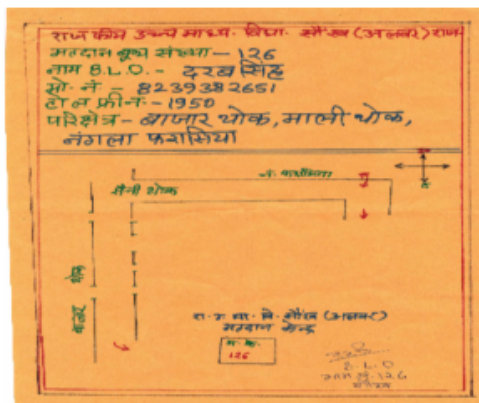 राजकीय उच्च माध्य. विद्या. सौंख (अलवर) राज.
मतदान बूथ संख्या - 126
नाम B.L.O. - दरब सिंह
मो. नं. - 8239382651
टोल फ्री नं. - 1950
परिक्षेत्र - बाजार थोक, माली थोक,
नंगला फरासिया
सैनी थोक
थोक
रा. उ. मा. वि. सौंख (अलवर)
मतदान केन्द्र
म. क.
126
B.L.O
भाग सं. 126
सौंख